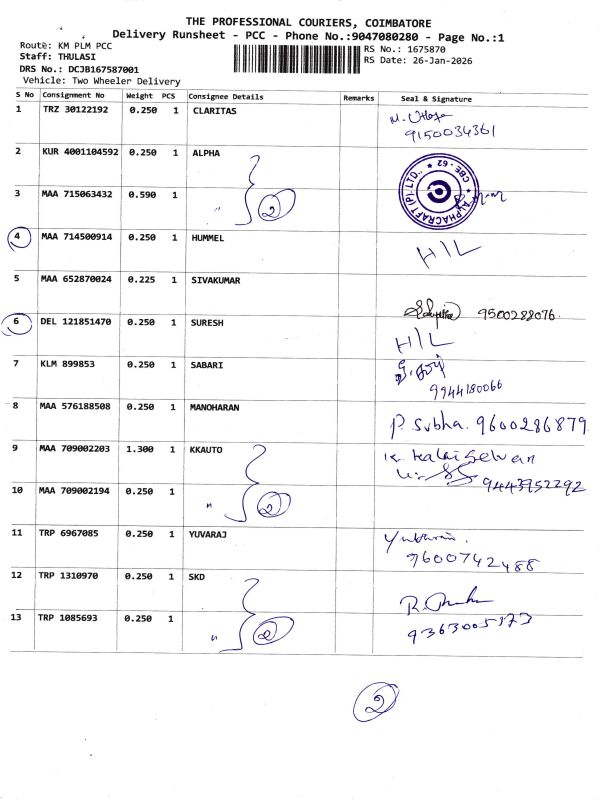 THE PROFESSIONAL COURIERS, COIMBATORE
Delivery Runsheet - PCC - Phone No.:9047080280 - Page No.:1
Route: KM PLM PCC
RS No.: 1675870
Staff: THULASI
RS Date: 26-Jan-2026
DRS No.: DCJB167587001
Vehicle: Two Wheeler Delivery
S No Consignment No Weight PCS Consignee Details Remarks Seal & Signature
1 TRZ 30122192 0.250 1 CLARITAS
9150034361
2 KUR 4001104592 0.250 1 ALPHA
ALPHACRAFT (P) LTD., CBE-62
3 MAA 715063432 0.590 1 " 2
4 MAA 714500914 0.250 1 HUMMEL H/L
5 MAA 652870024 0.225 1 SIVAKUMAR
9500288076
6 DEL 121851470 0.250 1 SURESH
H/L
7 KLM 899853 0.250 1 SABARI
9944180066
8 MAA 576188508 0.250 1 MANOHARAN P. Subha. 9600286879
9 MAA 709002203 1.300 1 KKAUTO K. Kalai Selvan
9443952292
10 MAA 709002194 0.250 1 " 2
11 TRP 6967085 0.250 1 YUVARAJ
9600742488
12 TRP 1310970 0.250 1 SKD
13 TRP 1085693 0.250 1 " 2
9363005173
2